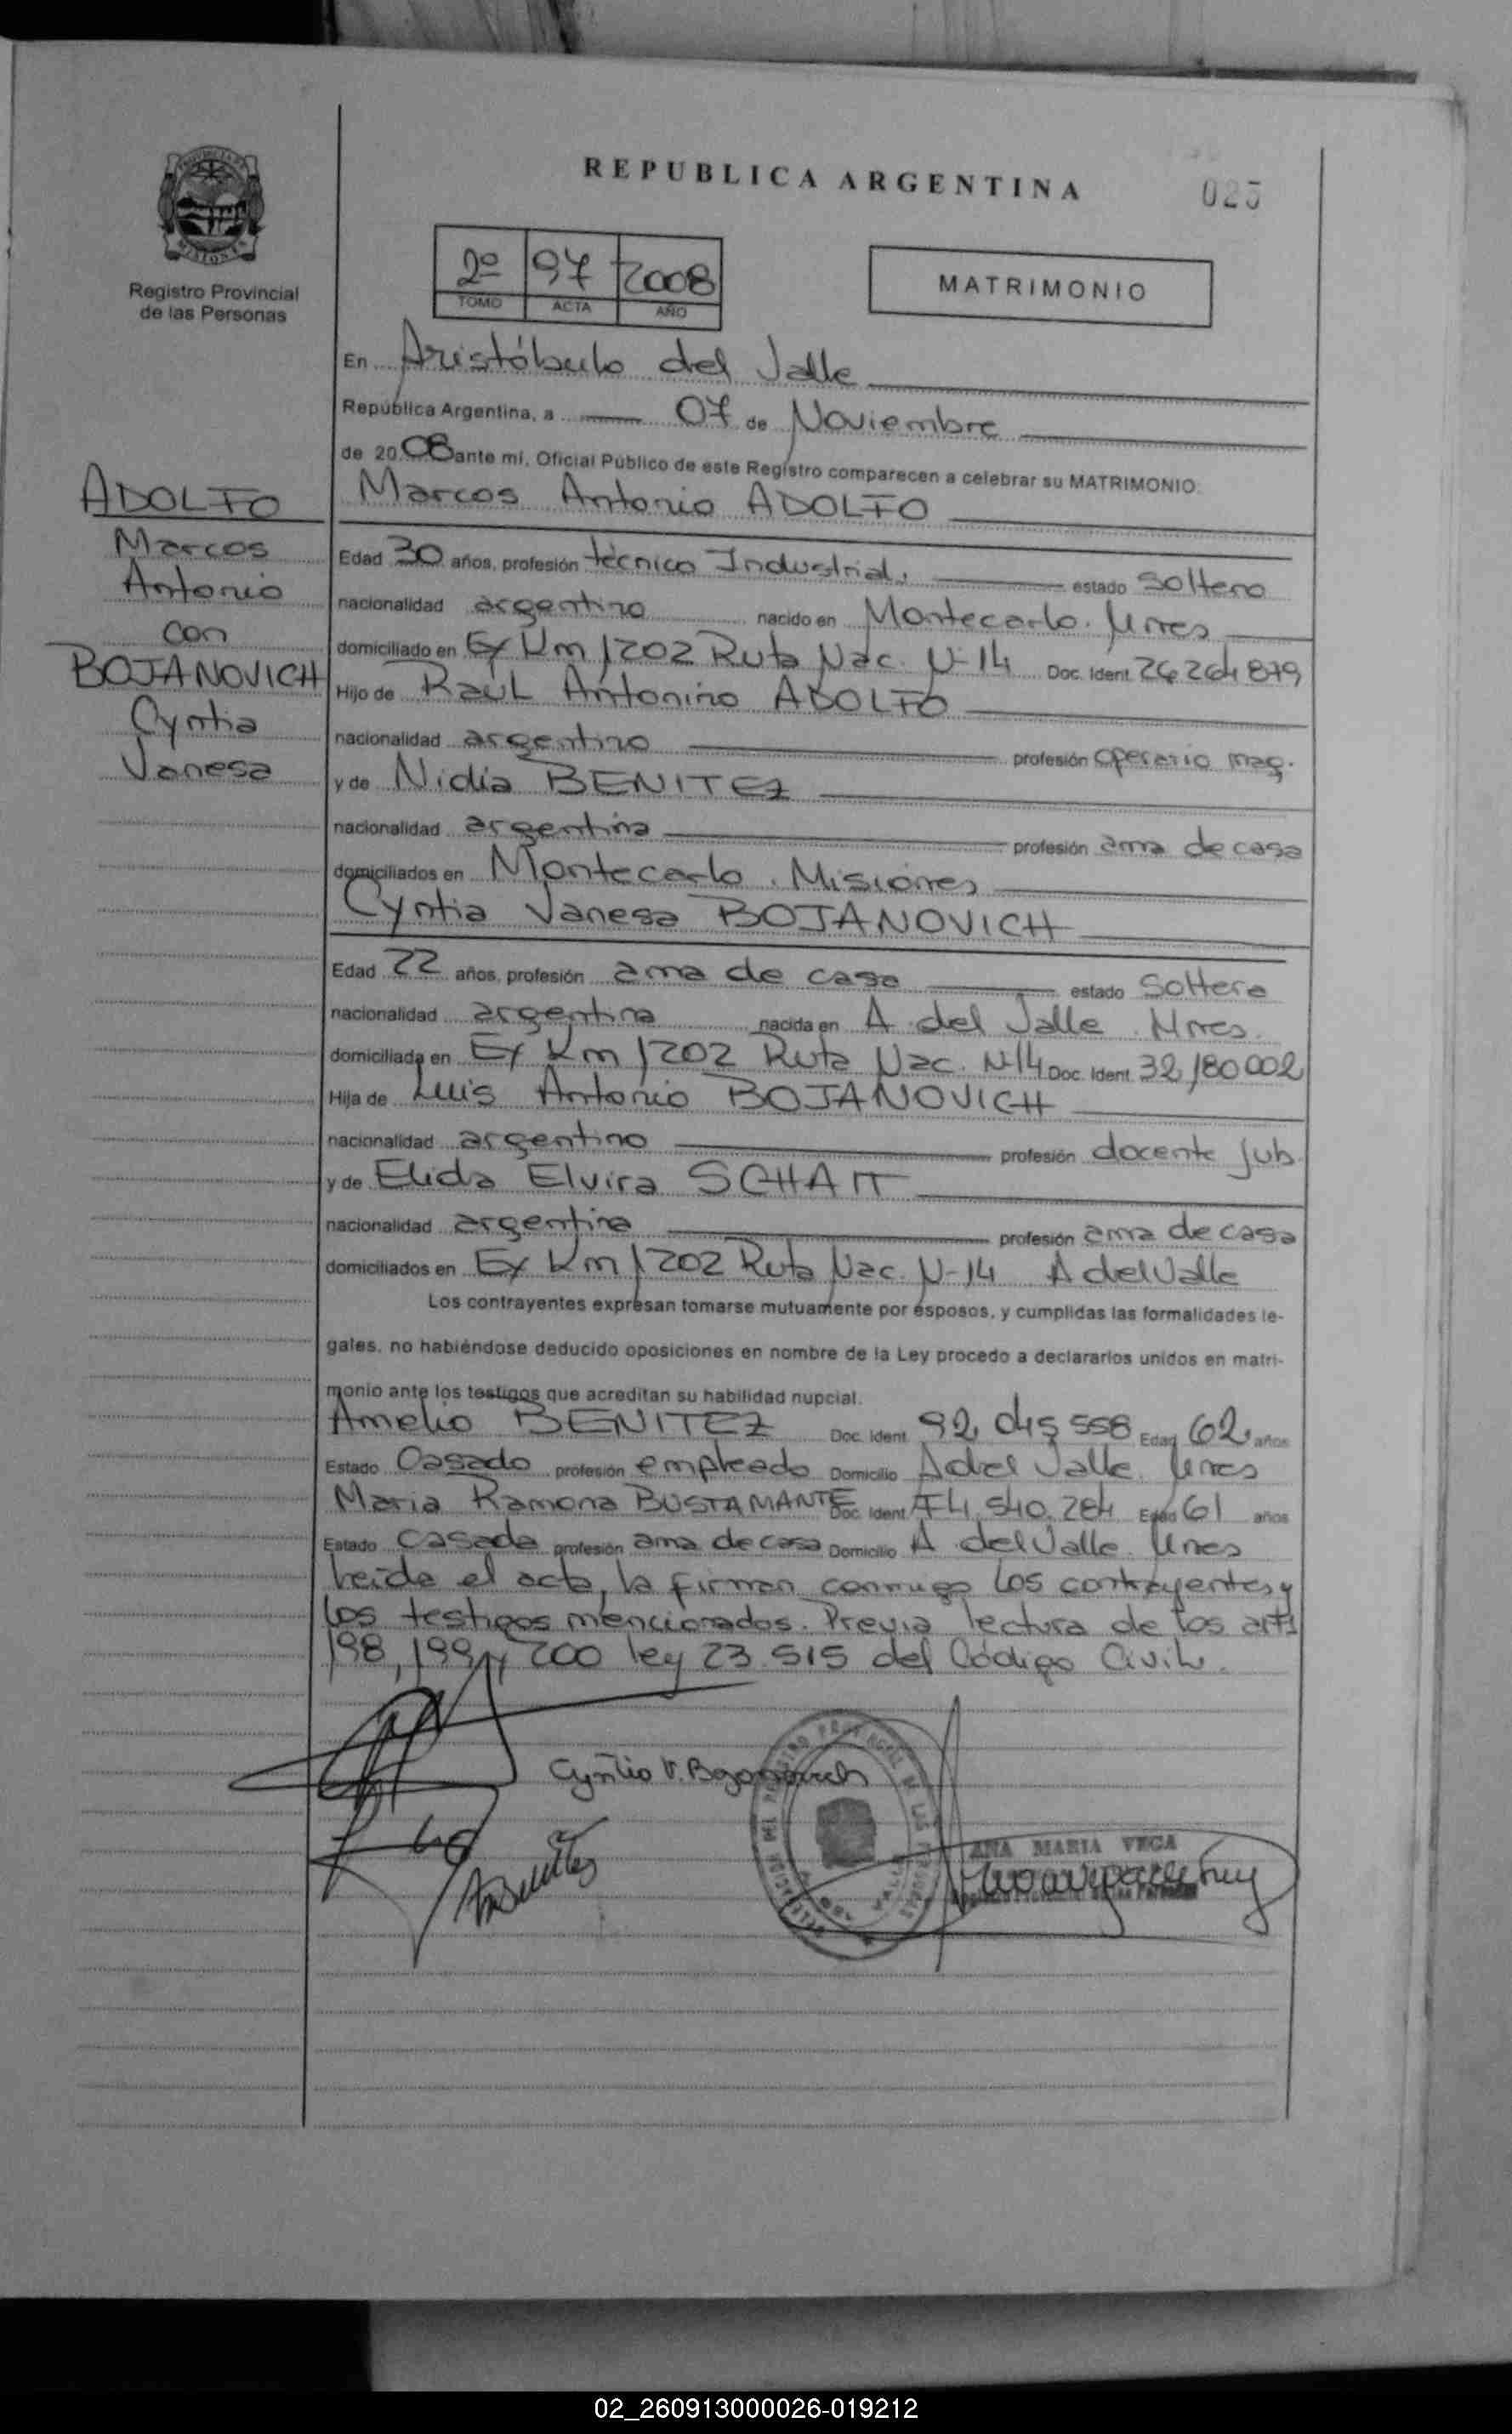 REPUBLICA ARGENTINA
025
Registro Provincial
de las Personas
2º 97 2008
TOMO ACTA AÑO
MATRIMONIO
En Aristóbulo del Valle
República Argentina, a 07 de Noviembre
de 2008 ante mí, Oficial Público de este Registro comparecen a celebrar su MATRIMONIO.
ADOLFO
Marcos
Antonio
con
BOJANOVICH
Cyntia
Vanesa
Marcos Antonio ADOLFO
Edad 30 años, profesión técnico Industrial, estado soltero
nacionalidad argentino nacido en Montecarlo. Mnes
domiciliado en Ex Km 1202 Ruta Nac. Nº 14 Doc. Ident. 26 264 879
Hijo de Raúl Antonino ADOLFO
nacionalidad argentino profesión operario maq.
y de Nidia BENITEZ
nacionalidad argentina profesión ama de casa
domiciliados en Montecarlo. Misiones
Cyntia Vanesa BOJANOVICH
Edad 22 años, profesión ama de casa estado Soltera
nacionalidad argentina nacida en A. del Valle. Mnes.
domiciliada en Ex Km 1202 Ruta Nac. Nº 14 Doc. Ident. 32,180 002
Hija de Luis Antonio BOJANOVICH
nacionalidad argentino profesión docente Jub.
y de Elida Elvira SCHAIT
nacionalidad argentina profesión ama de casa
domiciliados en Ex Km 1202 Ruta Nac. N-14 A del Valle
Los contrayentes expresan tomarse mutuamente por esposos, y cumplidas las formalidades le-
gales, no habiéndose deducido oposiciones en nombre de la Ley procedo a declararlos unidos en matri-
monio ante los testigos que acreditan su habilidad nupcial.
Amelio BENITEZ Doc. Ident. 92,045 558 Edad 62 años
Estado Casado profesión empleado Domicilio A del Valle. Mnes
Maria Ramona BUSTAMANTE Doc. Ident. F4,540,284 Edad 61 años
Estado Casada profesión ama de casa Domicilio A del Valle. Mnes
Leida el acta, la firman conmigo los contrayentes y
los testigos mencionados. Previa lectura de los arts
198, 199 y 200 ley 23.515 del Código Civil.
Cyntia V. Bojanovich
ANA MARIA VEGA
02_260913000026-019212